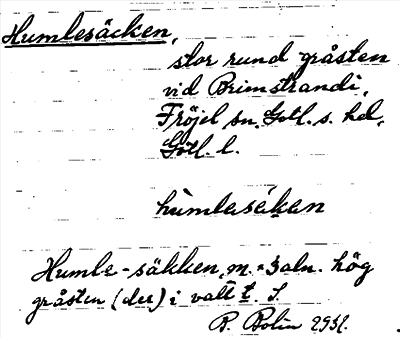 Humlesäcken,
stor rund gråsten
vid Brimstrandi,
Fröjel sn. Gotl. s. hd,
Gotl. l.
hùmlasékan
Humle-säkken, m. = 3 aln. hög
gråsten (der) i vatt
P. Bolin 1931.